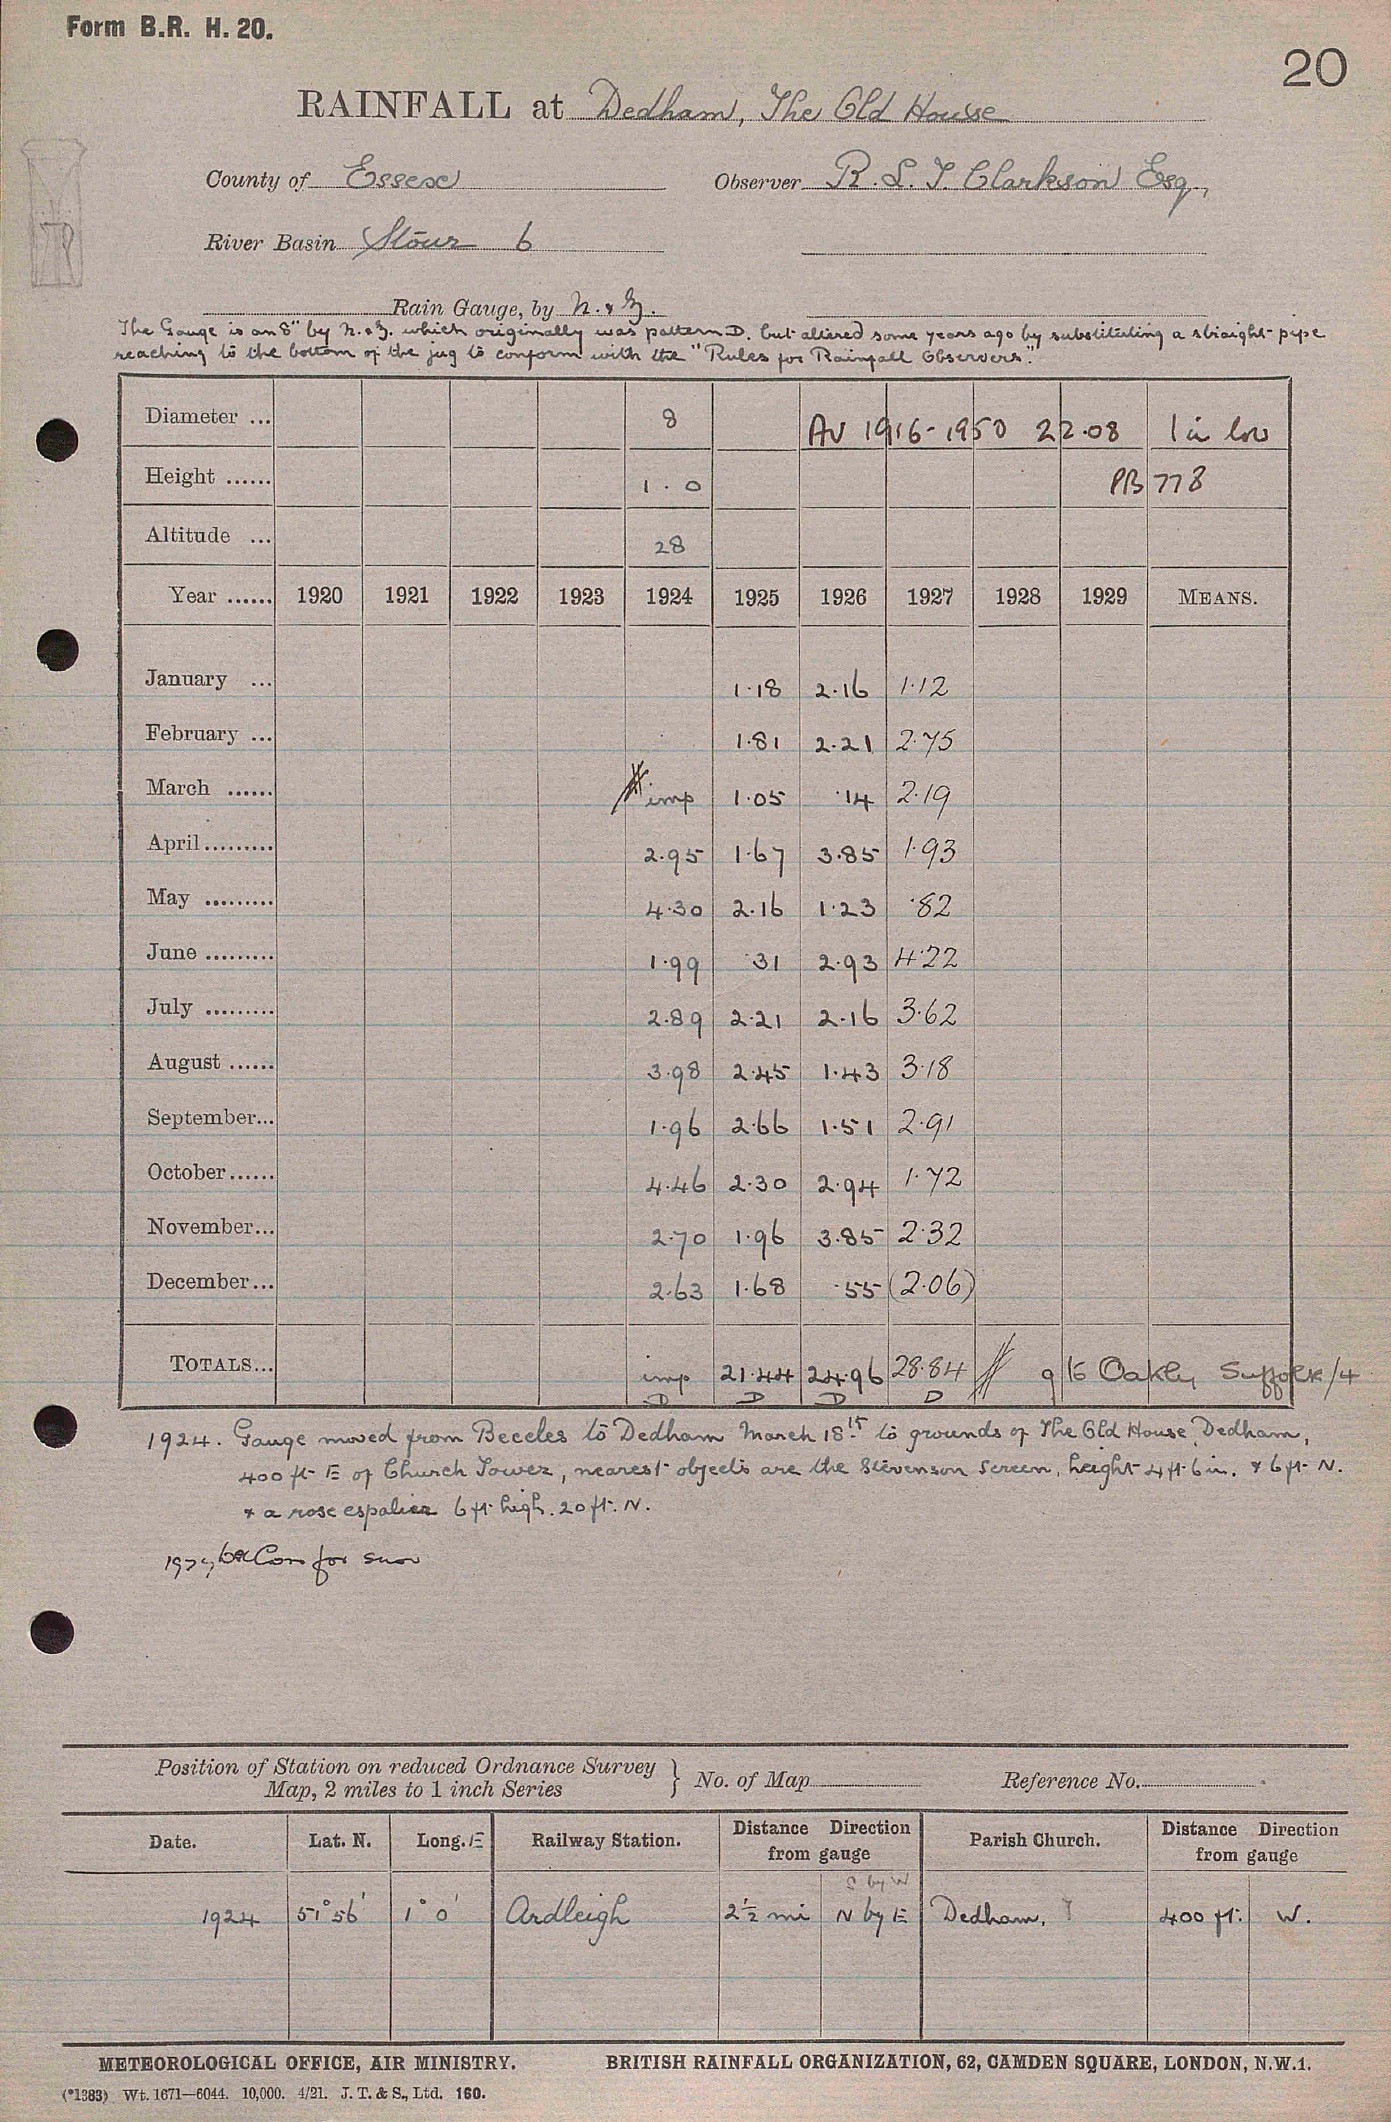 Form B.R. H. 20.
20
RAINFALL at Dedham, The Old House
County of Essex Observer R. L. T. Clarkson Esq,
River Basin Stour 6
Rain Gauge, by N. & Z.
The Gauge is an 8" by N. & Z. which originally was pattern D. but altered some years ago by substituting a straight pipe
reaching to the bottom of the jug to conform with the "Rules for Rainfall Observers."
Diameter ... 8 Av 1916-1950 22.08 1 in low
Height ...... 1.0 PB 778
Altitude ... 28
Year ...... 1920 1921 1922 1923 1924 1925 1926 1927 1928 1929 MEANS.
January ... 1.18 2.16 1.12
February ... 1.81 2.21 2.75
March ...... imp 1.05 .14 2.19
April......... 2.95 1.67 3.85 1.93
May ......... 4.30 2.16 1.23 .82
June ......... 1.99 .31 2.93 4.22
July ......... 2.89 2.21 2.16 3.62
August ...... 3.98 2.45 1.43 3.18
September... 1.96 2.66 1.51 2.91
October...... 4.46 2.30 2.94 1.72
November... 2.70 1.96 3.85 2.32
December... 2.63 1.68 .55 (2.06)
TOTALS... imp 21.44 24.96 28.84 g to Oakley Suffolk/4
D D D D
1924. Gauge moved from Beccles to Dedham March 18th to grounds of The Old House, Dedham,
400 ft E of Church Tower, nearest objects are the Stevenson Screen, height 4 ft 6 in. & 6 ft N.
& a rose espalier 6 ft high. 20 ft. N.
1927, Dec Corr for snow
Position of Station on reduced Ordnance Survey
Map, 2 miles to 1 inch Series } No. of Map Reference No.
Date. Lat. N. Long. E Railway Station. Distance Direction from gauge Parish Church. Distance Direction from gauge
S by W
1924 51° 56' 1° 0' Ardleigh 2½ mi N by E Dedham, 400 ft. W.
METEOROLOGICAL OFFICE, AIR MINISTRY. BRITISH RAINFALL ORGANIZATION, 62, CAMDEN SQUARE, LONDON, N.W.1.
(*1383) Wt. 1671—6044. 10,000. 4/21. J. T. & S., Ltd. 160.